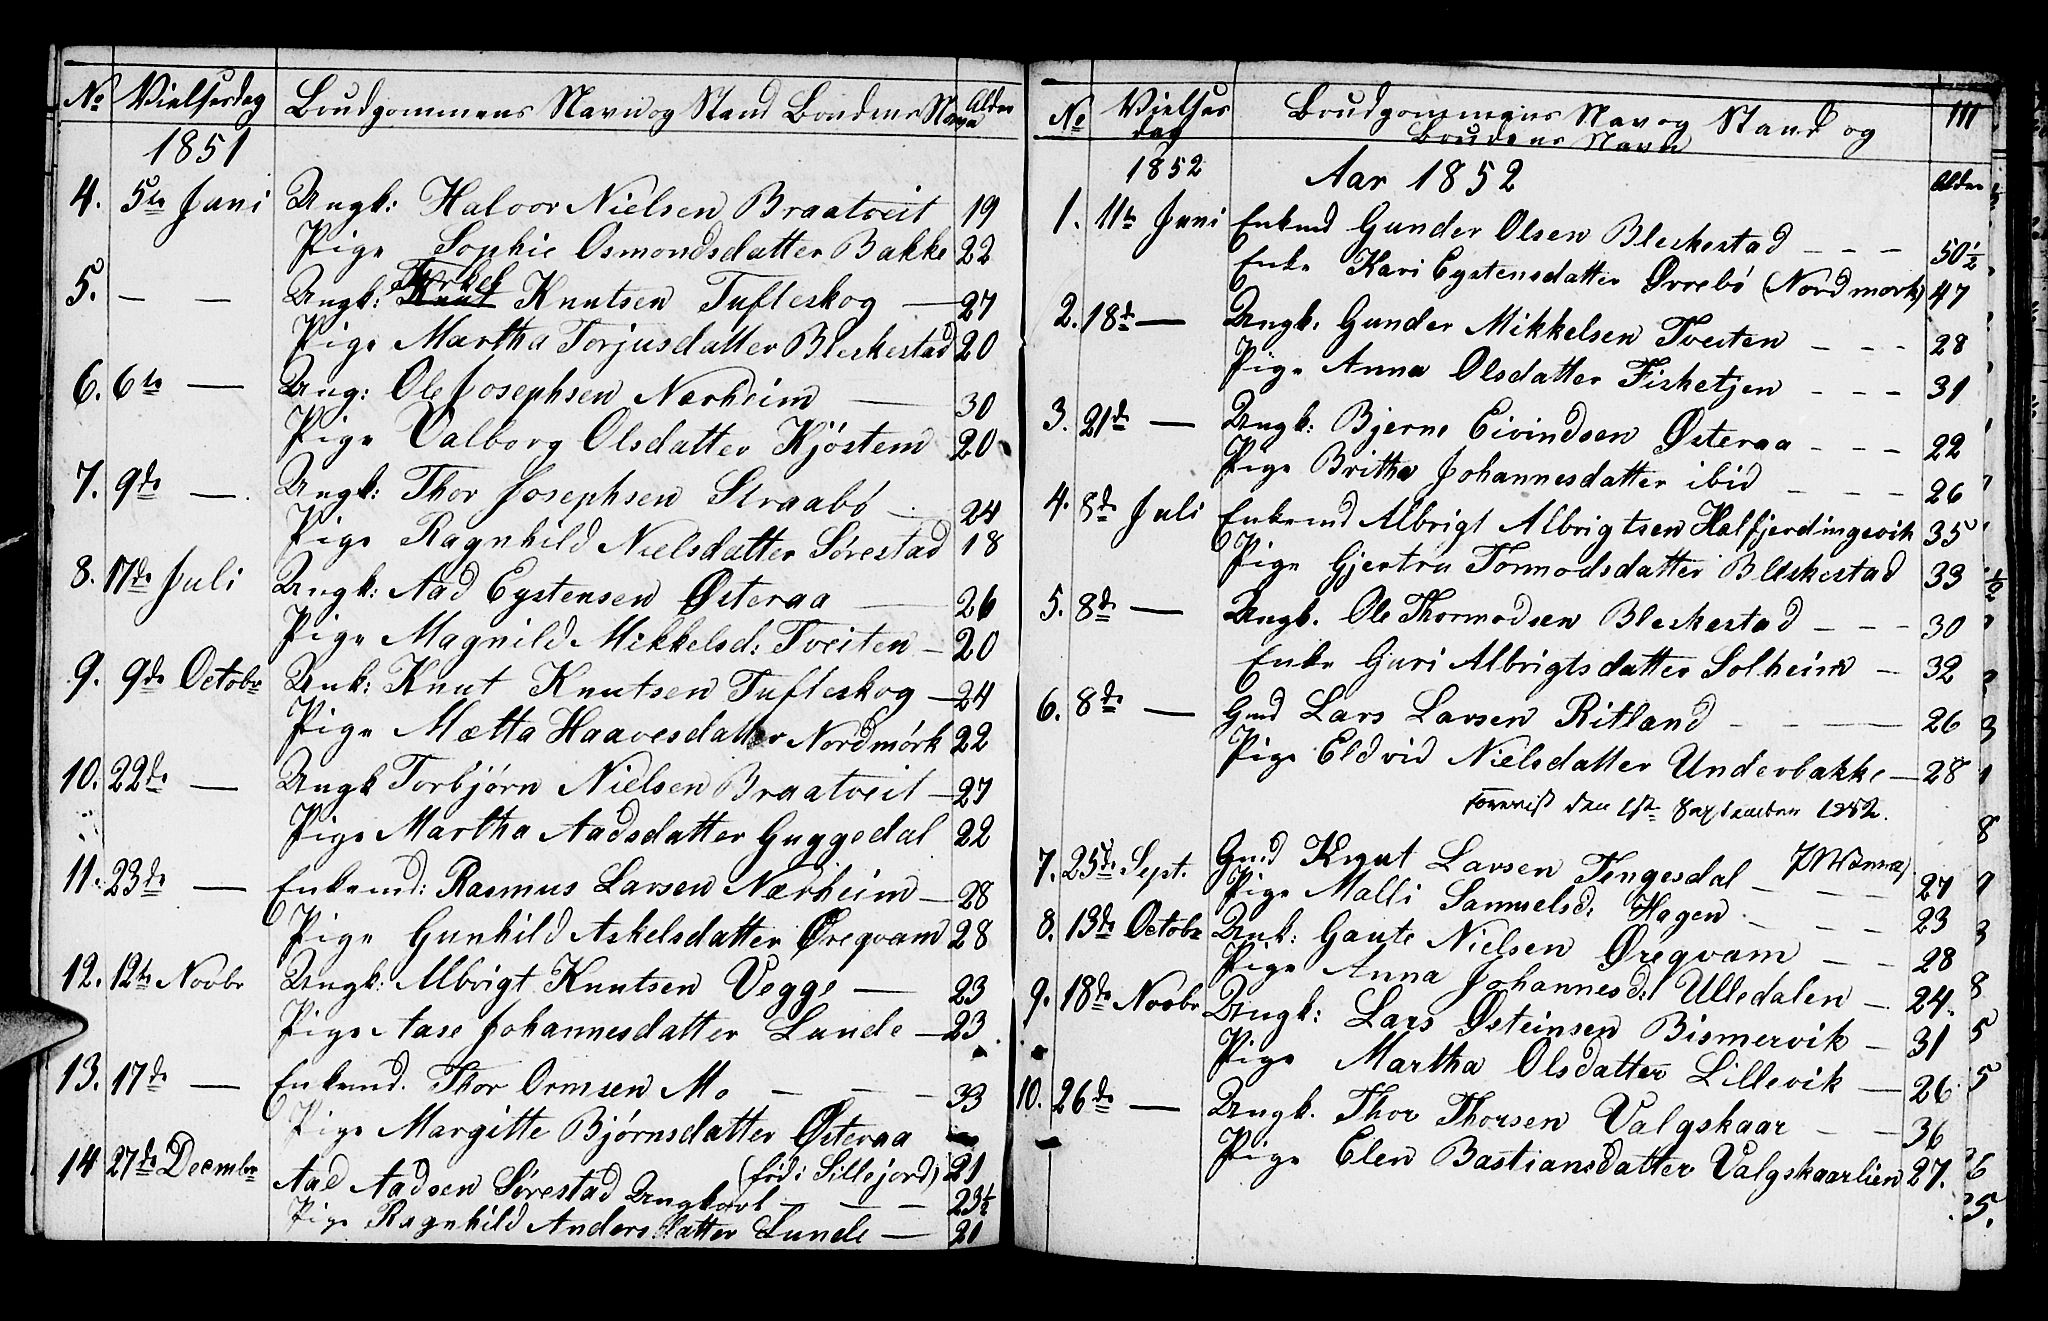 No Vielsesdag Brudgommens Navn og Stand Brudens Navn Alder
1851
4. 5te Juni Ungk: Halvor Nielsen Braatveit 19
Pige Sophie Osmondsdatter Bakke 22
Torkel
5. — — Ungk: Knut Knutsen Tufteskog — 27
Pige Martha Torjusdatter Bleskestad 20
6. 6te — Ung: Ole Josephsen Nærheim — 30
Pige Valborg Olsdatter Kjöstem 20
7. 9de — Ungk: Thor Josephsen Straabø — 24
Pige Ragnhild Nielsdatter Sørestad 18
8. 17de Juli Ungk: Aad Eystensen Østeraa — 26
Pige Magnild Mikkelsd: Tveiten — 20
9. 9de Octobr Unk: Knut Knutsen Tufteskog — 24
Pige Mætta Haavesdatter Nordmørk 22
10. 22de — Ungk Torbjørn Nielsen Braatveit — 27
Pige Martha Aadsdatter Guggedal 22
11. 23de — Enkemd: Rasmus Larsen Nærheim — 28
Pige Gunhild Askelsdatter Øregvam 28
12. 12te Novbr Ungk: Albrigt Knutsen Vegge — 23
Pige Aase Johannesdatter Lunde — 23.
13. 17de — Enkemd. Thor Ormsen Mo — — — 33
Pige Margitte Bjørnsdatter Østeraa —
(föd i Sillejord) 21
14 27de Decmbr Aad Aadsen Sørestad Ungkarl — — — 23½
Pige Ragnhild Andersdatter Lunde — 21
No Vielses dag Brudgommens Navn og Stand og 111
Brudens Navn
1852 Aar 1852 Alder
1. 11te Juni Enkemd Gunder Olsen Bleskestad — — — 50½
Enke Kari Eystensdatter Øvrebö (Nordmork) 47
2. 18de — Ungk. Gunder Mikkelsen Tveiten — — — 28
Pige Anna Olsdatter Fisketjen — — — 31
3. 21de — Ungk: Bjerne Eivindsen Østeraa — — — 22
Pige Britha Johannesdatter ibid — — — 26
4. 8de Juli Enkemd Albrigt Albrigtsen Halfjerdingsvik 35
Pige Gjertru Tormodsdatter Bleskestad 33
5. 8de — Ungk. Ole Thormodsen Bleskestad — — — 30
Enke Guri Albrigtsdatter Solheim — 32
6. 8de — Gmd Lars Larsen Ritland — — — 26
Pige Eldvid Nielsdatter Underbakke — 28
den 1ste September 1852.
7. 25de Sept. Gmd Knut Larsen Tengesdal — — — 27
Pige Malli Samuelsd: Hagen — — — 23
8. 13de Octobr Unk: Gaute Nielsen Øregvam — — 28
Pige Anna Johannesd: Ulledalen — 24.
9. 18de Novbr Ungk: Lars Østeinsen Bismervik — 31
Pige Martha Olsdatter Lillevik — 26
10. 26de — Ungk. Thor Thorsen Valgskaar — — 36
Pige Elen Bastiansdatter Valgskaarlien 27.